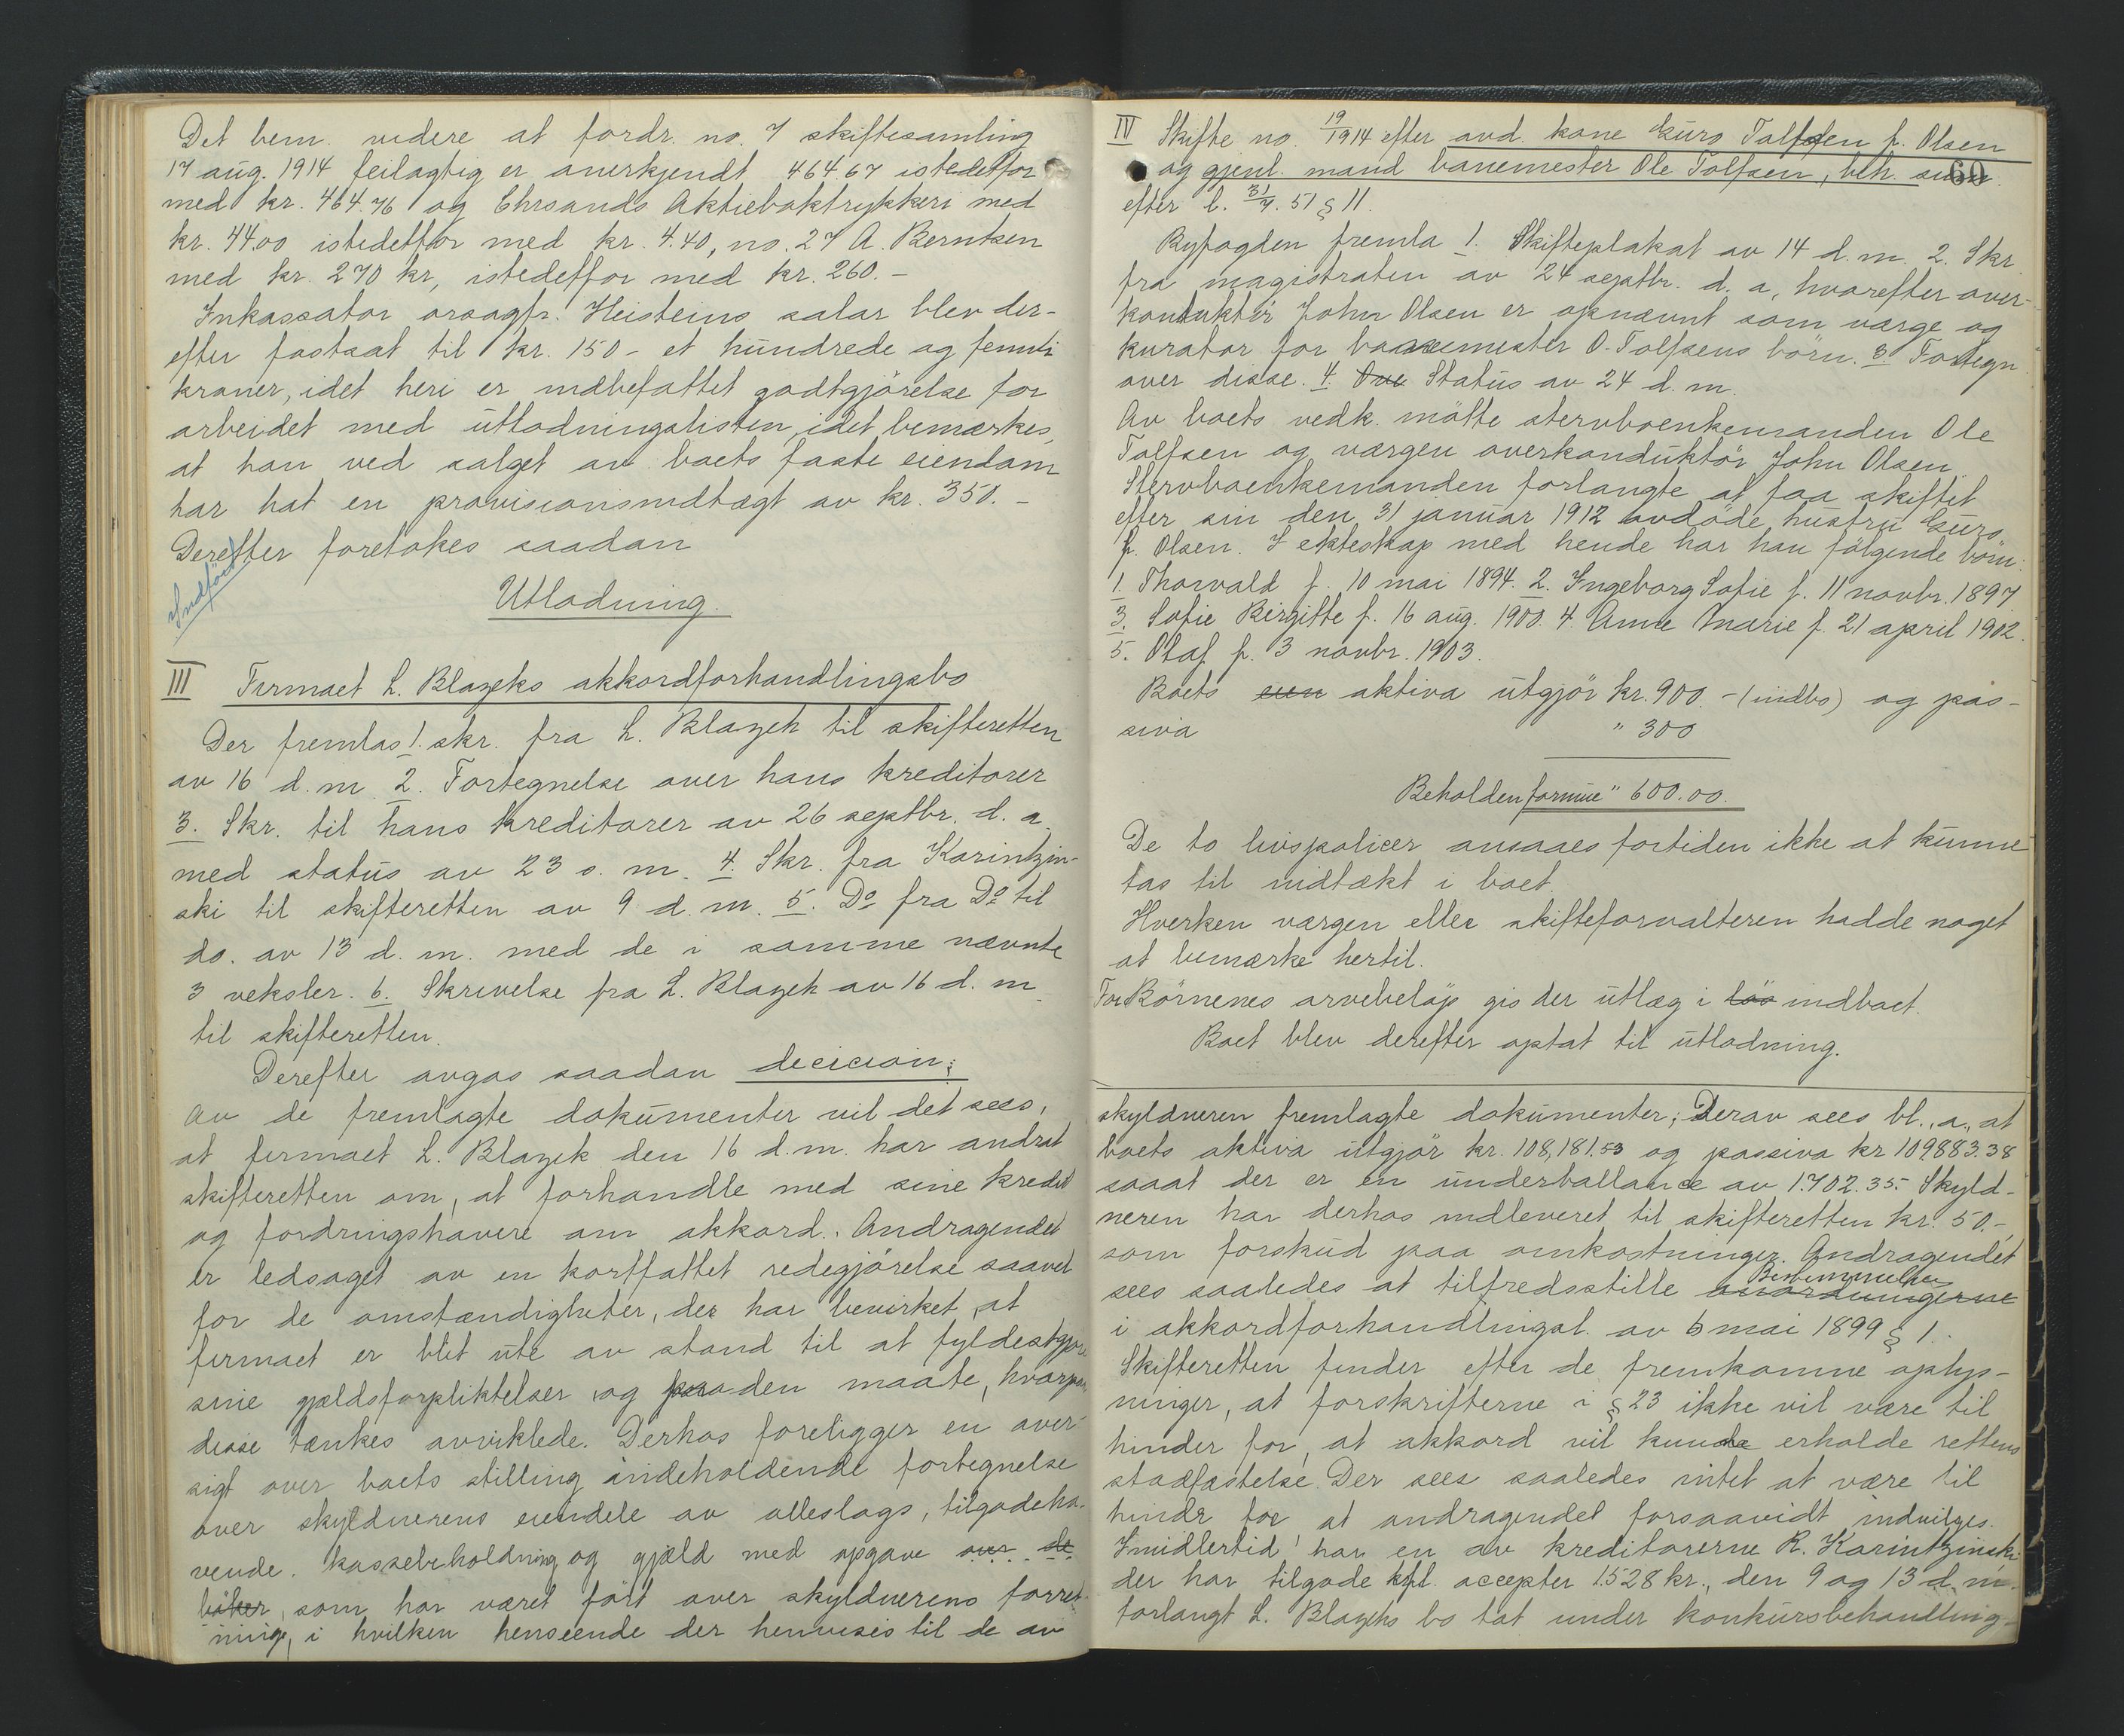 Det bem. videre at fordr. no. 7 skiftesamling
17 aug. 1914 feilagtig er anerkjendt 464.67 istedetfor
med kr. 464.76 og Chrsands Aktieboktrykkeri med
kr. 44.00 istedetfor med kr. 4.40, no. 27 A. Berntsen
med kr. 270 kr, istedetfor med kr. 260.-
Inkassator orsagfr. Heisteins salar blev der-
efter fastsat til kr. 150- et hundrede og femti
kroner, idet heri er indbefattet godtgjörelse for
arbeidet med utlodningslisten, idet bemærkes,
at han ved salget av boets faste eiendom
har hat en provisionsindtægt av kr. 350.-
Derefter foretokes saadan
Indfört
Utlodning.
III Firmaet L. Blazeks akkordforhandlingsbo
Der fremlas 1. skr. fra L. Blazek til skifteretten
av 16 d. m. 2. Fortegnelse over hans kreditorer
3. Skr. til hans kreditorer av 26 septbr. d. a.
med status av 23 s. m. 4. Skr. fra Karintzin-
ski til skifteretten av 9 d. m. 5. Do fra Do til
do. av 13 d. m. med de i samme nævnte
3 veksler. 6. Skrivelse fra L. Blazek av 16 d. m.
til skifteretten.
Derefter avgas saadan decision:
Av de fremlagte dokumenter vil det sees,
at firmaet L. Blazek den 16 d. m. har andrat
skifteretten om, at forhandle med sine kredit
og fordringshavere om akkord. Andragendet
er ledsaget av en kortfattet redegjörelse saavel
for de omstændigheter, der har bevirket, at
firmaet er blit ute av stand til at fyldestgjöre
sine gjældsforpliktelser og paa den maate, hvorpaa
disse tænkes avviklede. Derhos foreligger en over-
sigt over boets stilling indeholdende fortegnelse
over skyldnerens eiendele av alleslags, tilgodeha-
vende, kassebeholdning og gjæld med opgave over de
böker, som har været fört over skyldnerens forret-
ninge, i hvilken henseende der henvises til de av
IV Skifte no. 19/1914 efter avd. kone Guro Tolfsen f. Olsen
og gjenl. mand banemester Ole Tolfsen, beh.
69
efter l. 31/7. 51 § 11.
Byfogden fremla 1. Skifteplakat av 14 d. m. 2. Skr.
fra magistraten av 24 septbr. d. a., hvorefter over-
konduktör John Olsen er opnævnt som værge og
kurator for banemester O. Tolfsens börn. 3. Fortegn
over disse. 4. Ove Status av 24 d. m.
Av boets vedk. mötte stervboenkemanden Ole
Tolfsen og værgen overkonduktör John Olsen.
Stervboenkemanden forlangte at faa skiftet
efter sin den 31 januar 1912 avdöde hustru Guro
f. Olsen. I ekteskap med hende har han fölgende börn:
1. Thorvald f. 10 mai 1894. 2. Ingeborg Sofie f. 11 novbr. 1897.
3. Sofie Birgitte f. 16 aug. 1900. 4. Anne Marie f. 21 april 1902.
5. Olaf f. 3 novbr. 1903.
Boets eien aktiva utgjör kr. 900.- (indbo) og pas-
siva " 300
Beholden formue " 600.00.
De to livspolicer ansaaes fortiden ikke at kunne
tas til indtækt i boet.
Hverken værgen eller skifteforvalteren hadde noget
at bemærke hertil.
For Börnenes arvebelöp gis der utlæg i lös indboet.
Boet blev derefter optat til utlodning.
skyldneren fremlagte dokumenter; Derav sees bl. a., at
boets aktiva utgjör kr. 108,181.53 og passiva kr 109883.38
saaat der er en underballance av 1.702.35. Skyld-
neren har derhos indleveret til skifteretten kr. 50.-,
som forskud paa omkostninger. Andragendet
Bestemmelser
sees saaledes at tilfredsstille anordningerne
i akkordforhandlingsl. av 6 mai 1899 § 1.
Skifteretten finder efter de fremkomne oplys-
ninger, at forskrifterne i § 23 ikke vil være til
hinder for, at akkord vil kunne erholde rettens
stadfæstelse. Der sees saaledes intet at være til
hinder for at andragendet forsaavidt indvilges.
Imidlertid har en av kreditorerne R. Karintzinski
der har tilgode accepter 1.528 kr., den 9 og 13 d. m.
forlangt L. Blazeks bo tat under konkursbehandling-